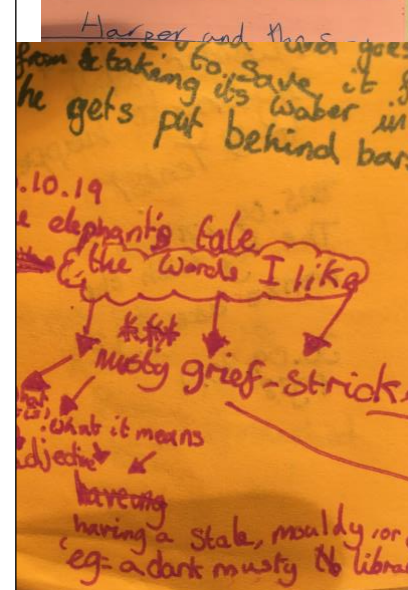 Harper and the S
and goes
from & taking to save it f
its water in
he gets put behind bars
.10.19
e elephant's tale
the words I like
musty grief-strick
what it means
adjective
having
having a stale, mouldy, or
eg= a dark musty librar